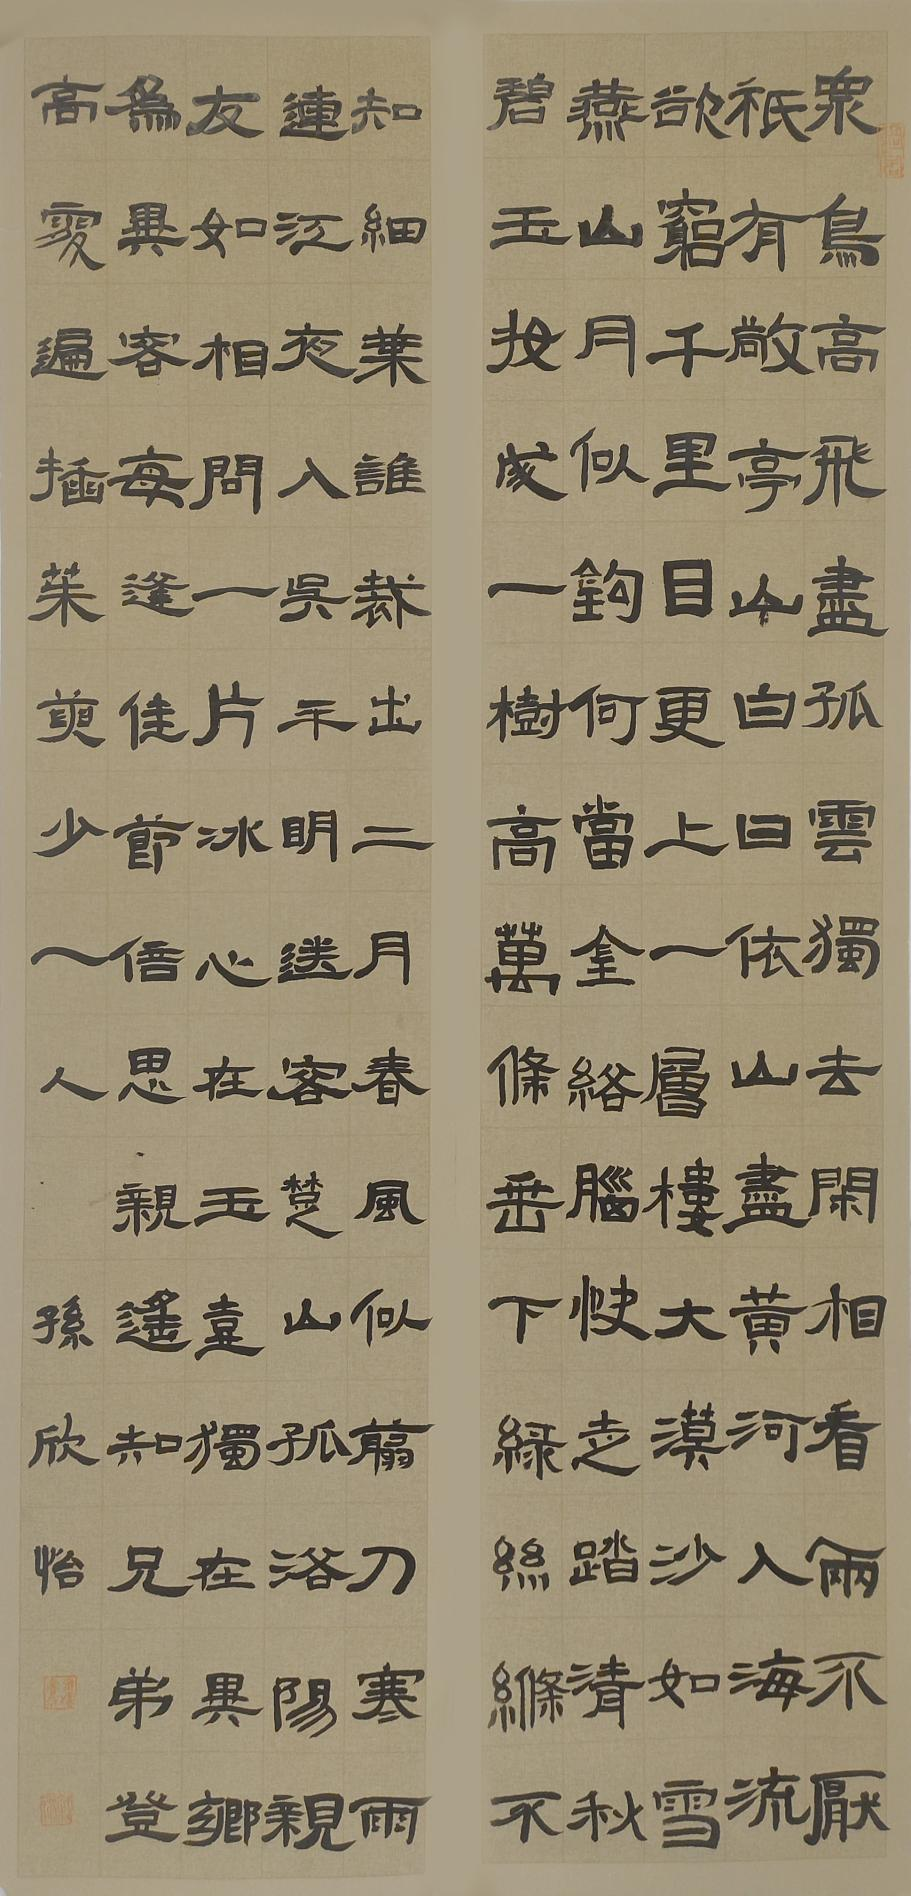 眾鳥高飛盡孤雲獨去閑相看兩不厭
祇有敬亭山白日依山盡黃河入海流
欲窮千里目更上一層樓大漠沙如雪
燕山月似鈎何當金絡腦快走踏清秋
碧玉妝成一樹高萬條垂下綠絲縧不
知細葉誰裁出二月春風似翦刀寒雨
連江夜入吳平明送客楚山孤洛陽親
友如相問一片冰心在玉壺獨在異鄉
為異客每逢佳節倍思親遙知兄弟登
高處遍插茱萸少一人
孫欣怡